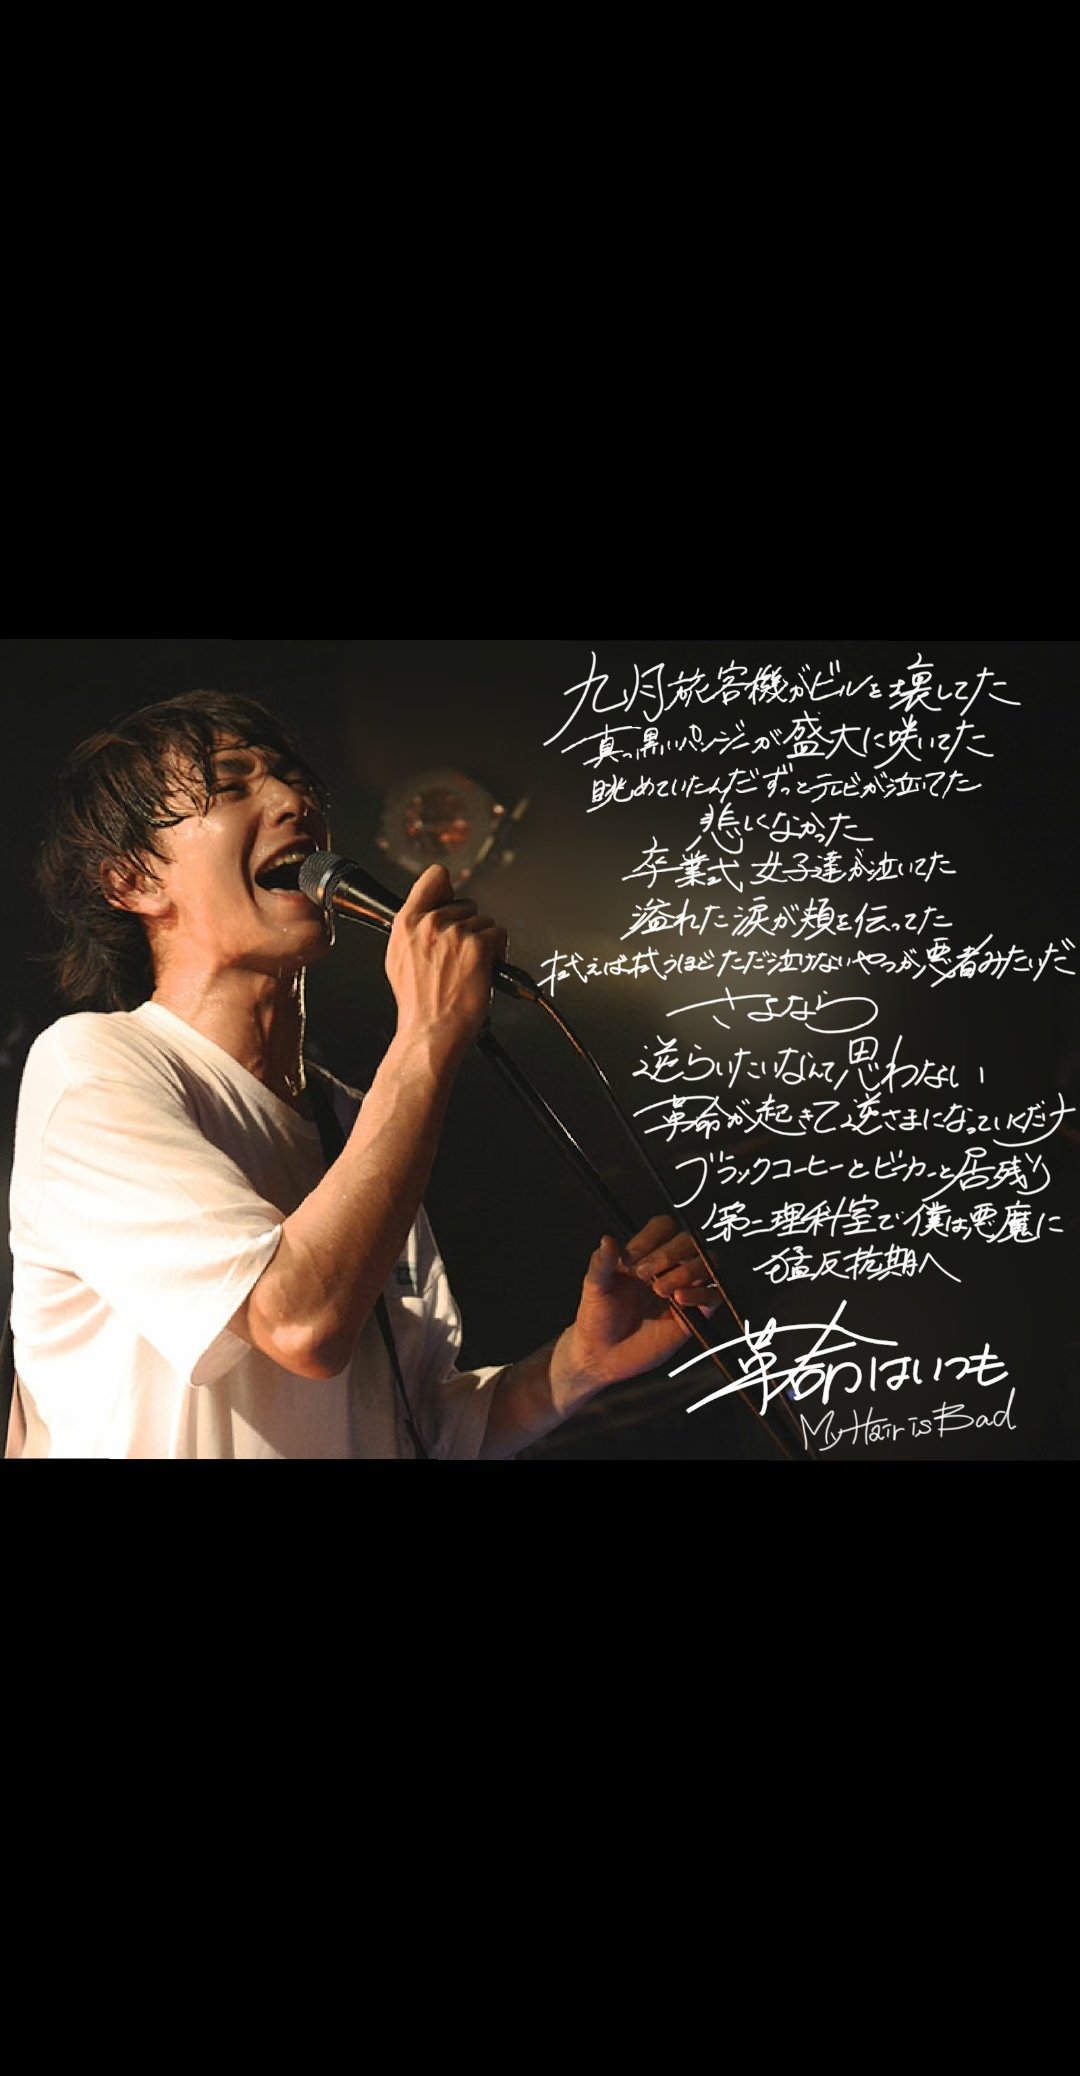 九月旅客機がビルを壊してた
真っ黒いパンジーが盛大に咲いてた
眺めていたんだずっとテレビが泣いてた
悲しくなかった
卒業式、女子達が泣いてた
溢れた涙が頬を伝ってた
拭えば拭うほどただ泣けないやつが悪者みたいだ
さよなら
逆らいたいなんて思わない
革命が起きて逆さまになっていくだけ
ブラックコーヒーとビーカーと居残り
第二理科室で僕は悪魔に
猛反抗期へ
革命はいつも
My Hair is Bad